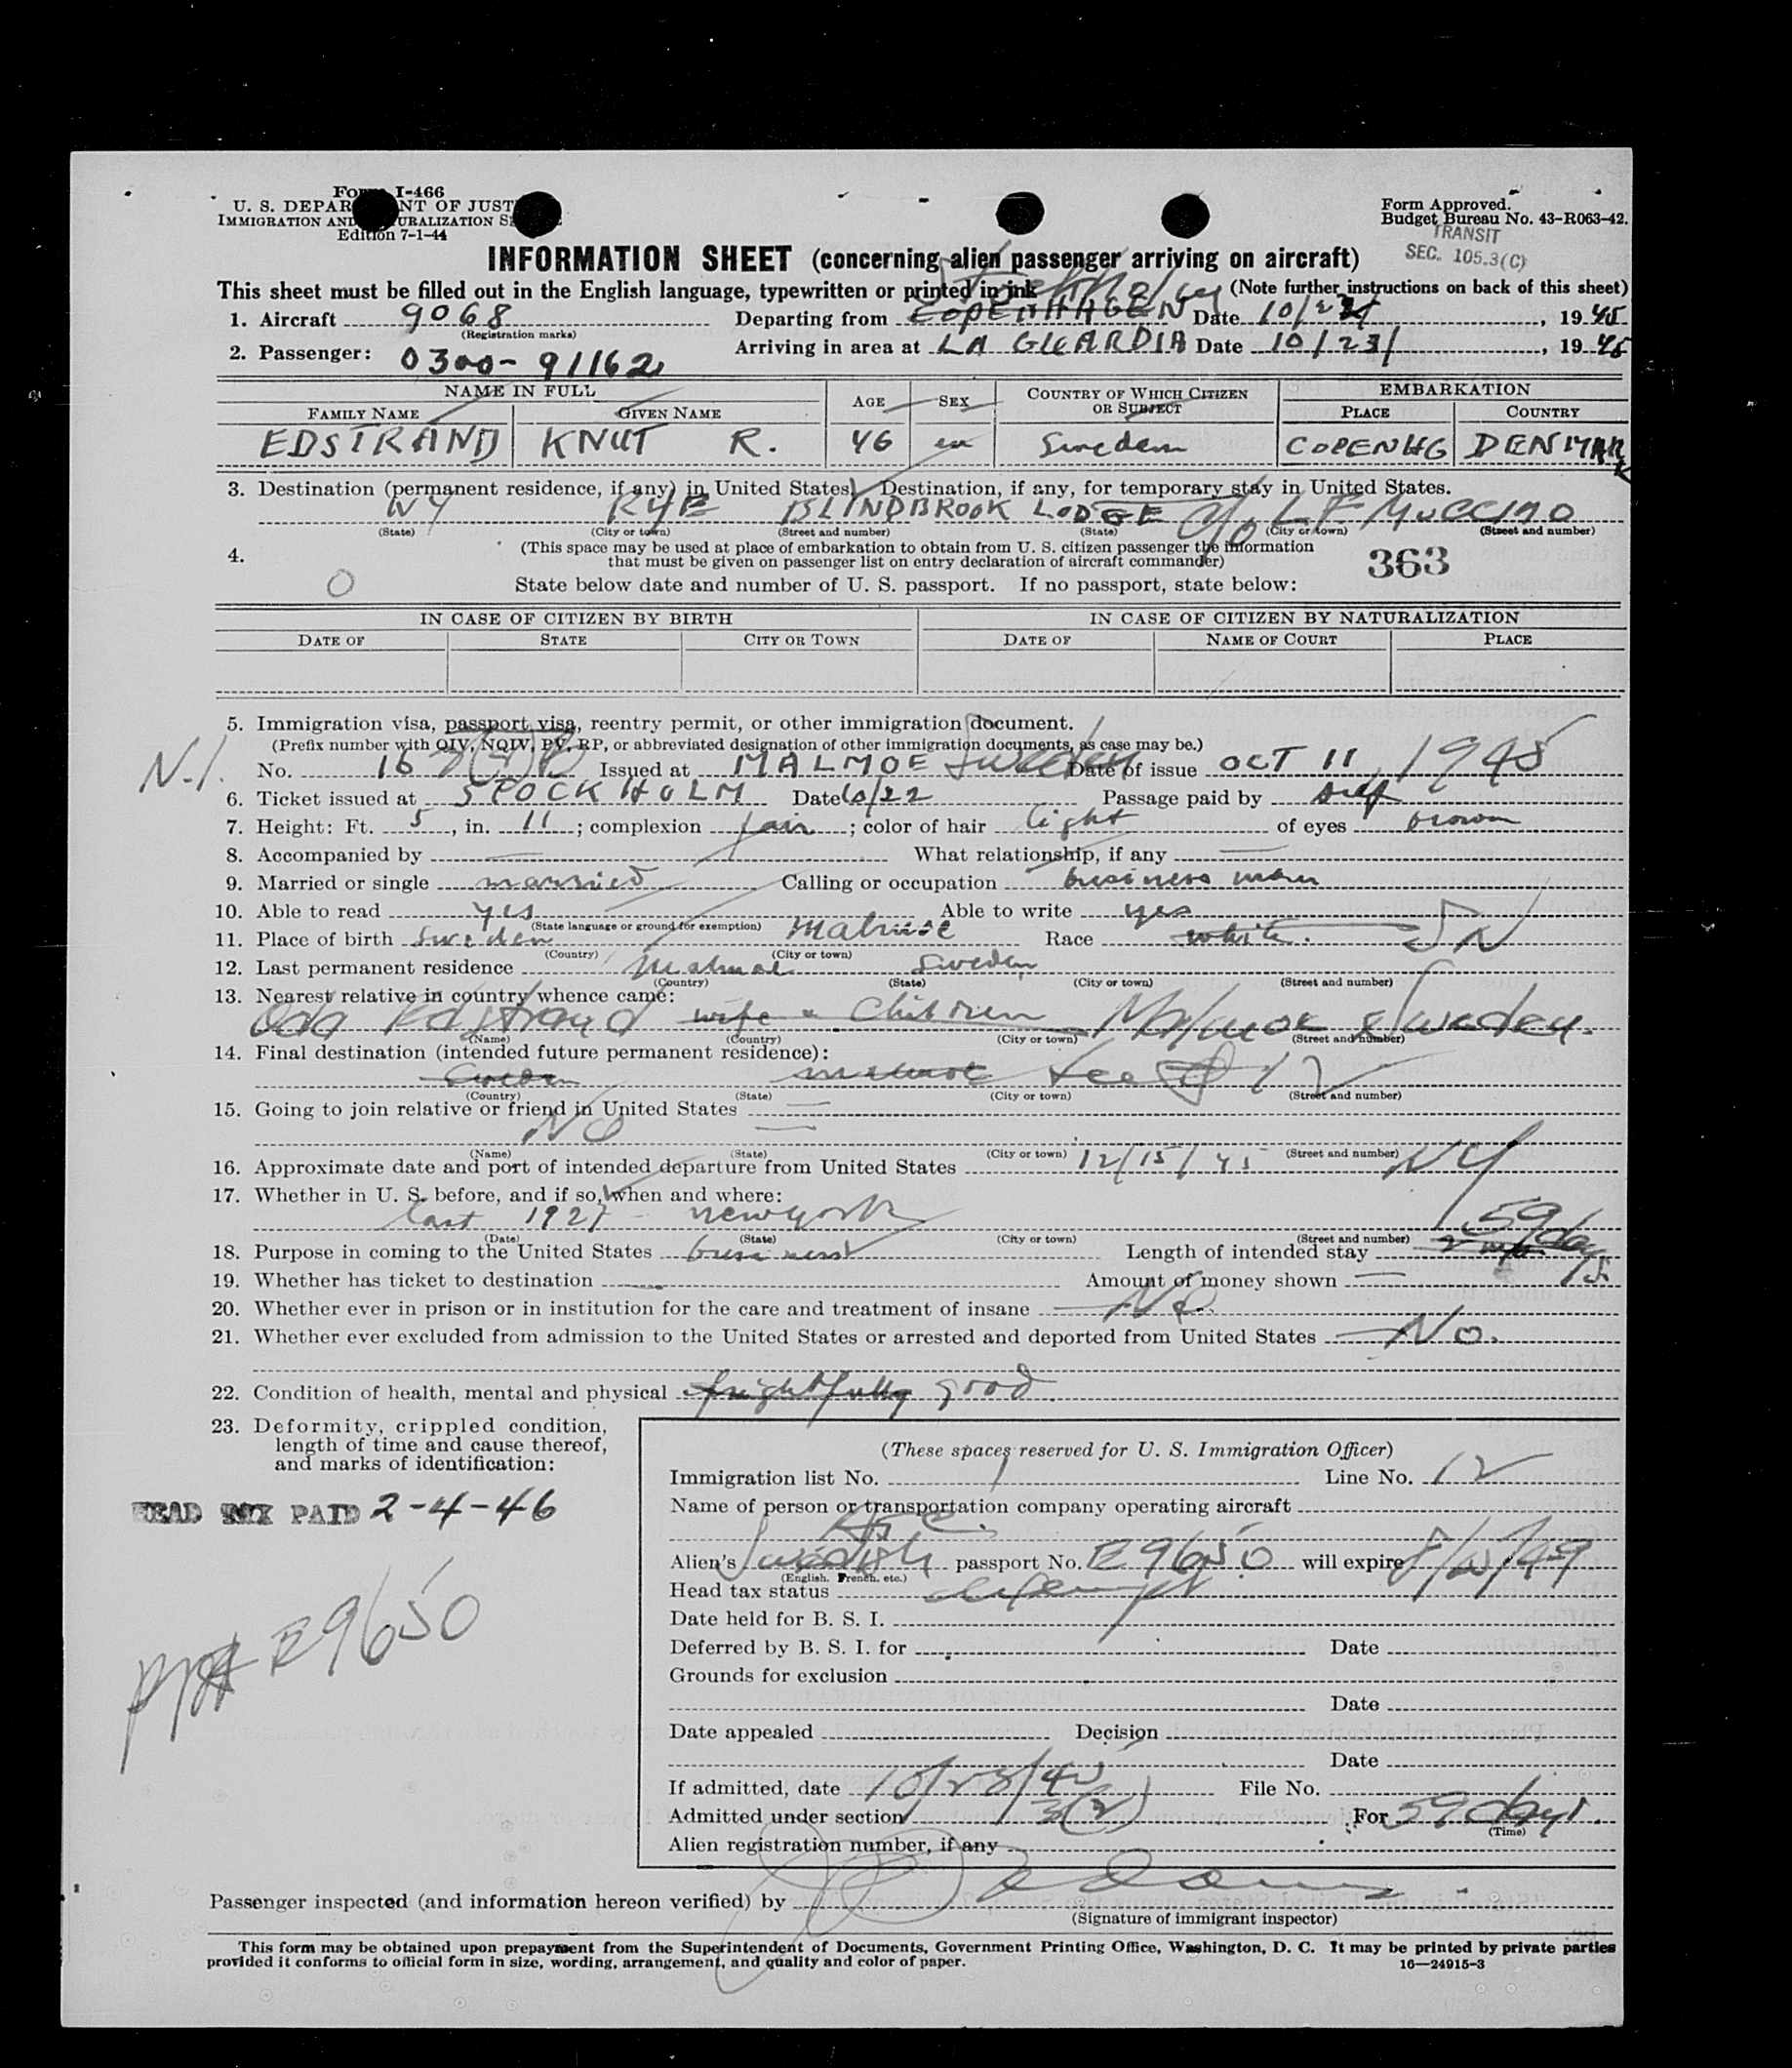 Form I-466
U. S. DEPARTMENT OF JUSTICE
IMMIGRATION AND NATURALIZATION SERVICE
Edition 7-1-44
Form Approved.
Budget Bureau No. 43-R063-42.
TRANSIT
SEC. 105.3(C)
INFORMATION SHEET (concerning alien passenger arriving on aircraft)
This sheet must be filled out in the English language, typewritten or printed in ink (Note further instructions on back of this sheet)
Stockholm
1. Aircraft 9068 Departing from COPENHAGEN Date 10/22, 1945
(Registration marks)
2. Passenger: 0300-91162 Arriving in area at LA GUARDIA Date 10/23/, 1945
NAME IN FULL AGE SEX COUNTRY OF WHICH CITIZEN OR SUBJECT EMBARKATION
FAMILY NAME GIVEN NAME PLACE COUNTRY
EDSTRAND KNUT R. 46 m Sweden COPENHG DENMARK
3. Destination (permanent residence, if any) in United States. Destination, if any, for temporary stay in United States.
NY RYE BLINDBROOK LODGE c/o L F Muccino
(State) (City or town) (Street and number) (State) (City or town) (Street and number)
4. (This space may be used at place of embarkation to obtain from U. S. citizen passenger the information
that must be given on passenger list on entry declaration of aircraft commander)
363
0 State below date and number of U. S. passport. If no passport, state below:
IN CASE OF CITIZEN BY BIRTH IN CASE OF CITIZEN BY NATURALIZATION
DATE OF STATE CITY OR TOWN DATE OF NAME OF COURT PLACE
5. Immigration visa, passport visa, reentry permit, or other immigration document.
(Prefix number with QIV, NQIV, PV, RP, or abbreviated designation of other immigration documents, as case may be.)
N.I. No. 16 Issued at MALMOE Sweden Date of issue OCT 11, 1945
6. Ticket issued at STOCKHOLM Date 10/22 Passage paid by self
7. Height: Ft. 5, in. 11; complexion fair; color of hair light of eyes brown
8. Accompanied by — What relationship, if any —
9. Married or single married Calling or occupation business man
10. Able to read yes Able to write yes
(State language or ground for exemption)
11. Place of birth Sweden Malmoe Race white.
(Country) (City or town)
12. Last permanent residence Malmoe Sweden
(Country) (State) (City or town) (Street and number)
13. Nearest relative in country whence came:
Oda Edstrand wife & Children Malmoe Sweden.
(Name) (Country) (City or town) (Street and number)
14. Final destination (intended future permanent residence):
Sweden Malmoe See # 12
(Country) (State) (City or town) (Street and number)
15. Going to join relative or friend in United States —
NO —
(Name) (State) (City or town) (Street and number)
16. Approximate date and port of intended departure from United States 12/15/45 NY
17. Whether in U. S. before, and if so, when and where:
last 1927 - new york
(Date) (State) (City or town) (Street and number)
59 days
18. Purpose in coming to the United States business Length of intended stay
19. Whether has ticket to destination — Amount of money shown —
20. Whether ever in prison or in institution for the care and treatment of insane No.
21. Whether ever excluded from admission to the United States or arrested and deported from United States No.
22. Condition of health, mental and physical frightfully good
23. Deformity, crippled condition,
length of time and cause thereof,
and marks of identification:
HEAD TAX PAID 2-4-46
PPT E9650
(These spaces reserved for U. S. Immigration Officer)
Immigration list No. 1 Line No. 12
Name of person or transportation company operating aircraft
Alien's Swedish passport No. E9650 will expire
(English, French, etc.)
Head tax status exempt
Date held for B. S. I.
Deferred by B. S. I. for Date
Grounds for exclusion
Date
Date appealed Decision
Date
If admitted, date 10/23/45 File No.
Admitted under section 3(2) For 59 days.
(Time)
Alien registration number, if any
Passenger inspected (and information hereon verified) by
(Signature of immigrant inspector)
This form may be obtained upon prepayment from the Superintendent of Documents, Government Printing Office, Washington, D. C. It may be printed by private parties
provided it conforms to official form in size, wording, arrangement, and quality and color of paper.
16—24915-3